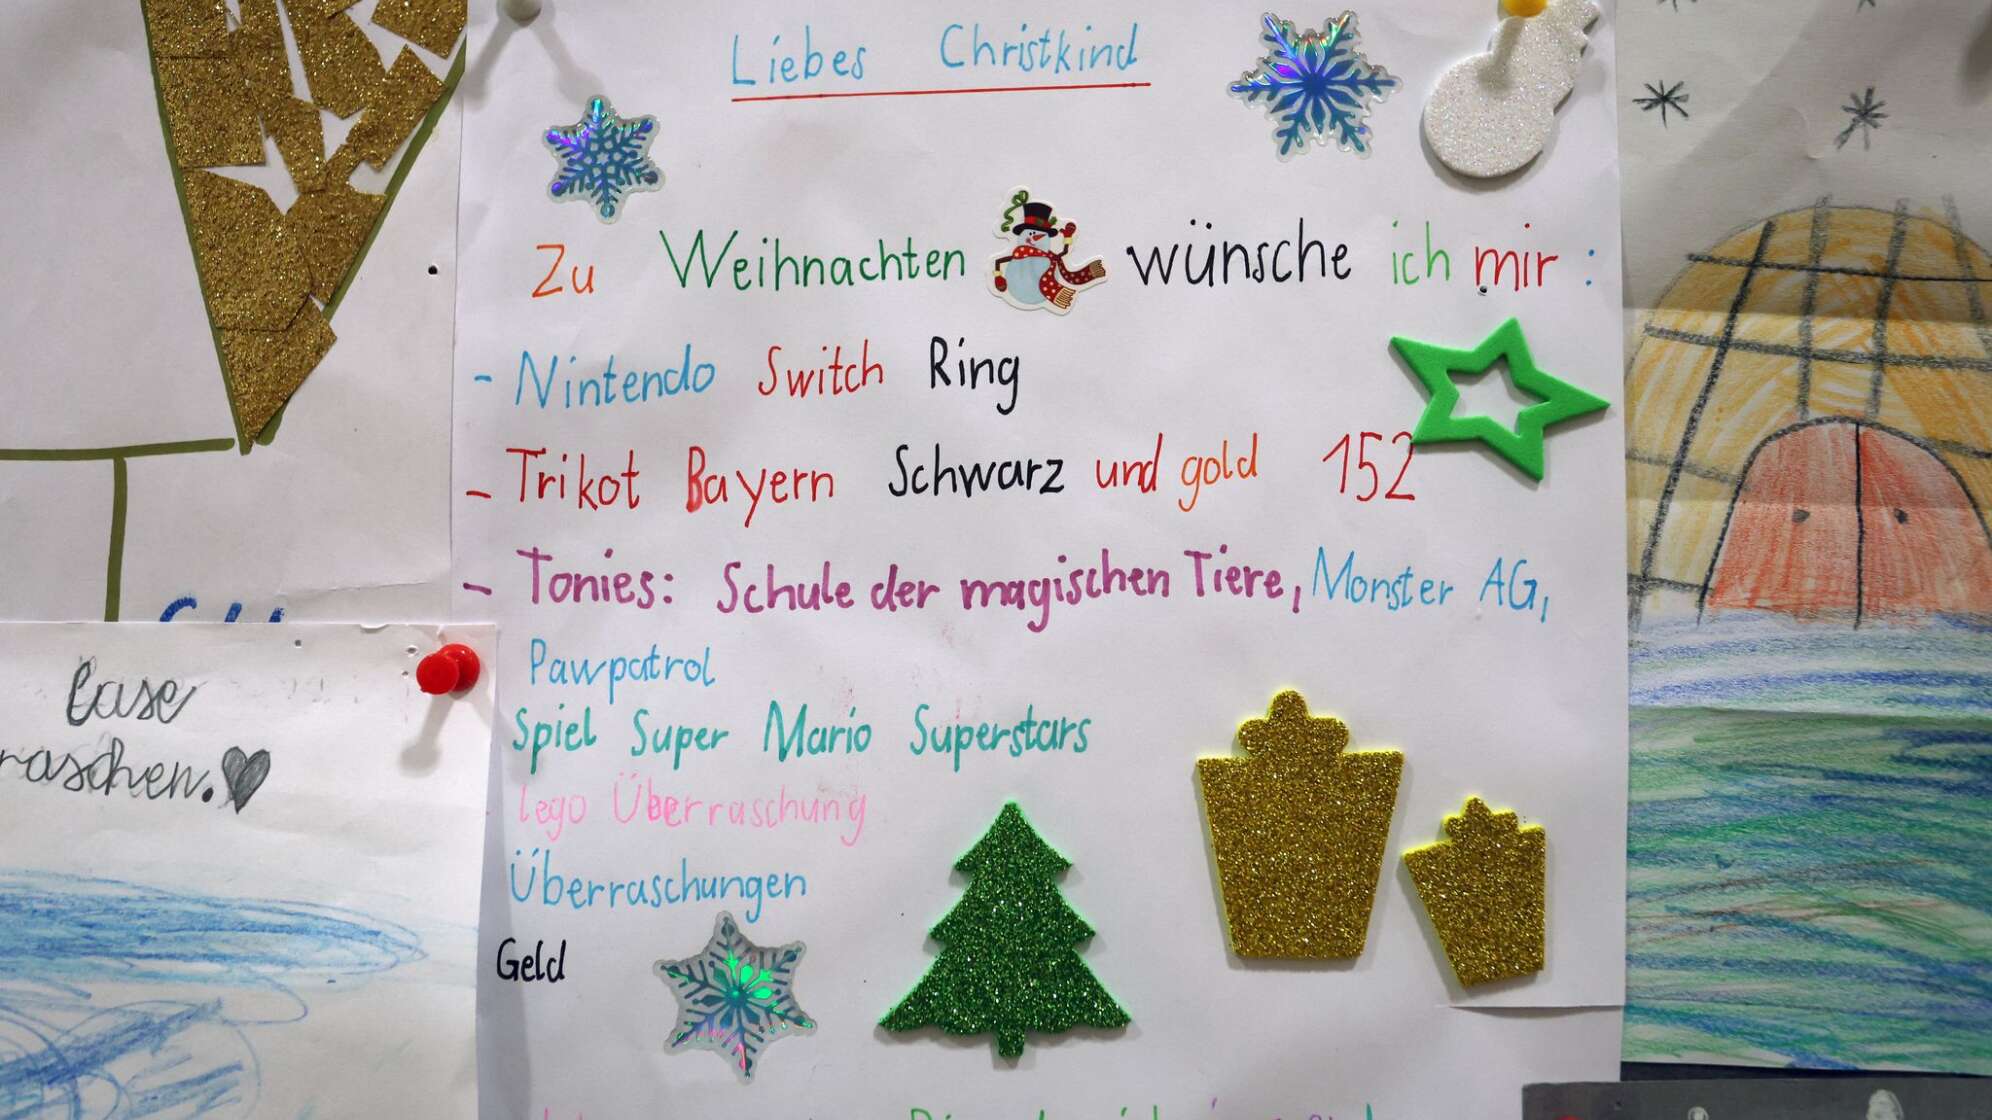 Liebes Christkind
Zu Weihnachten wünsche ich mir :
- Nintendo Switch Ring
- Trikot Bayern Schwarz und gold 152
- Tonies: Schule der magischen Tiere, Monster AG,
Pawpatrol
Spiel Super Mario Superstars
Lego Überraschung
Überraschungen
Geld